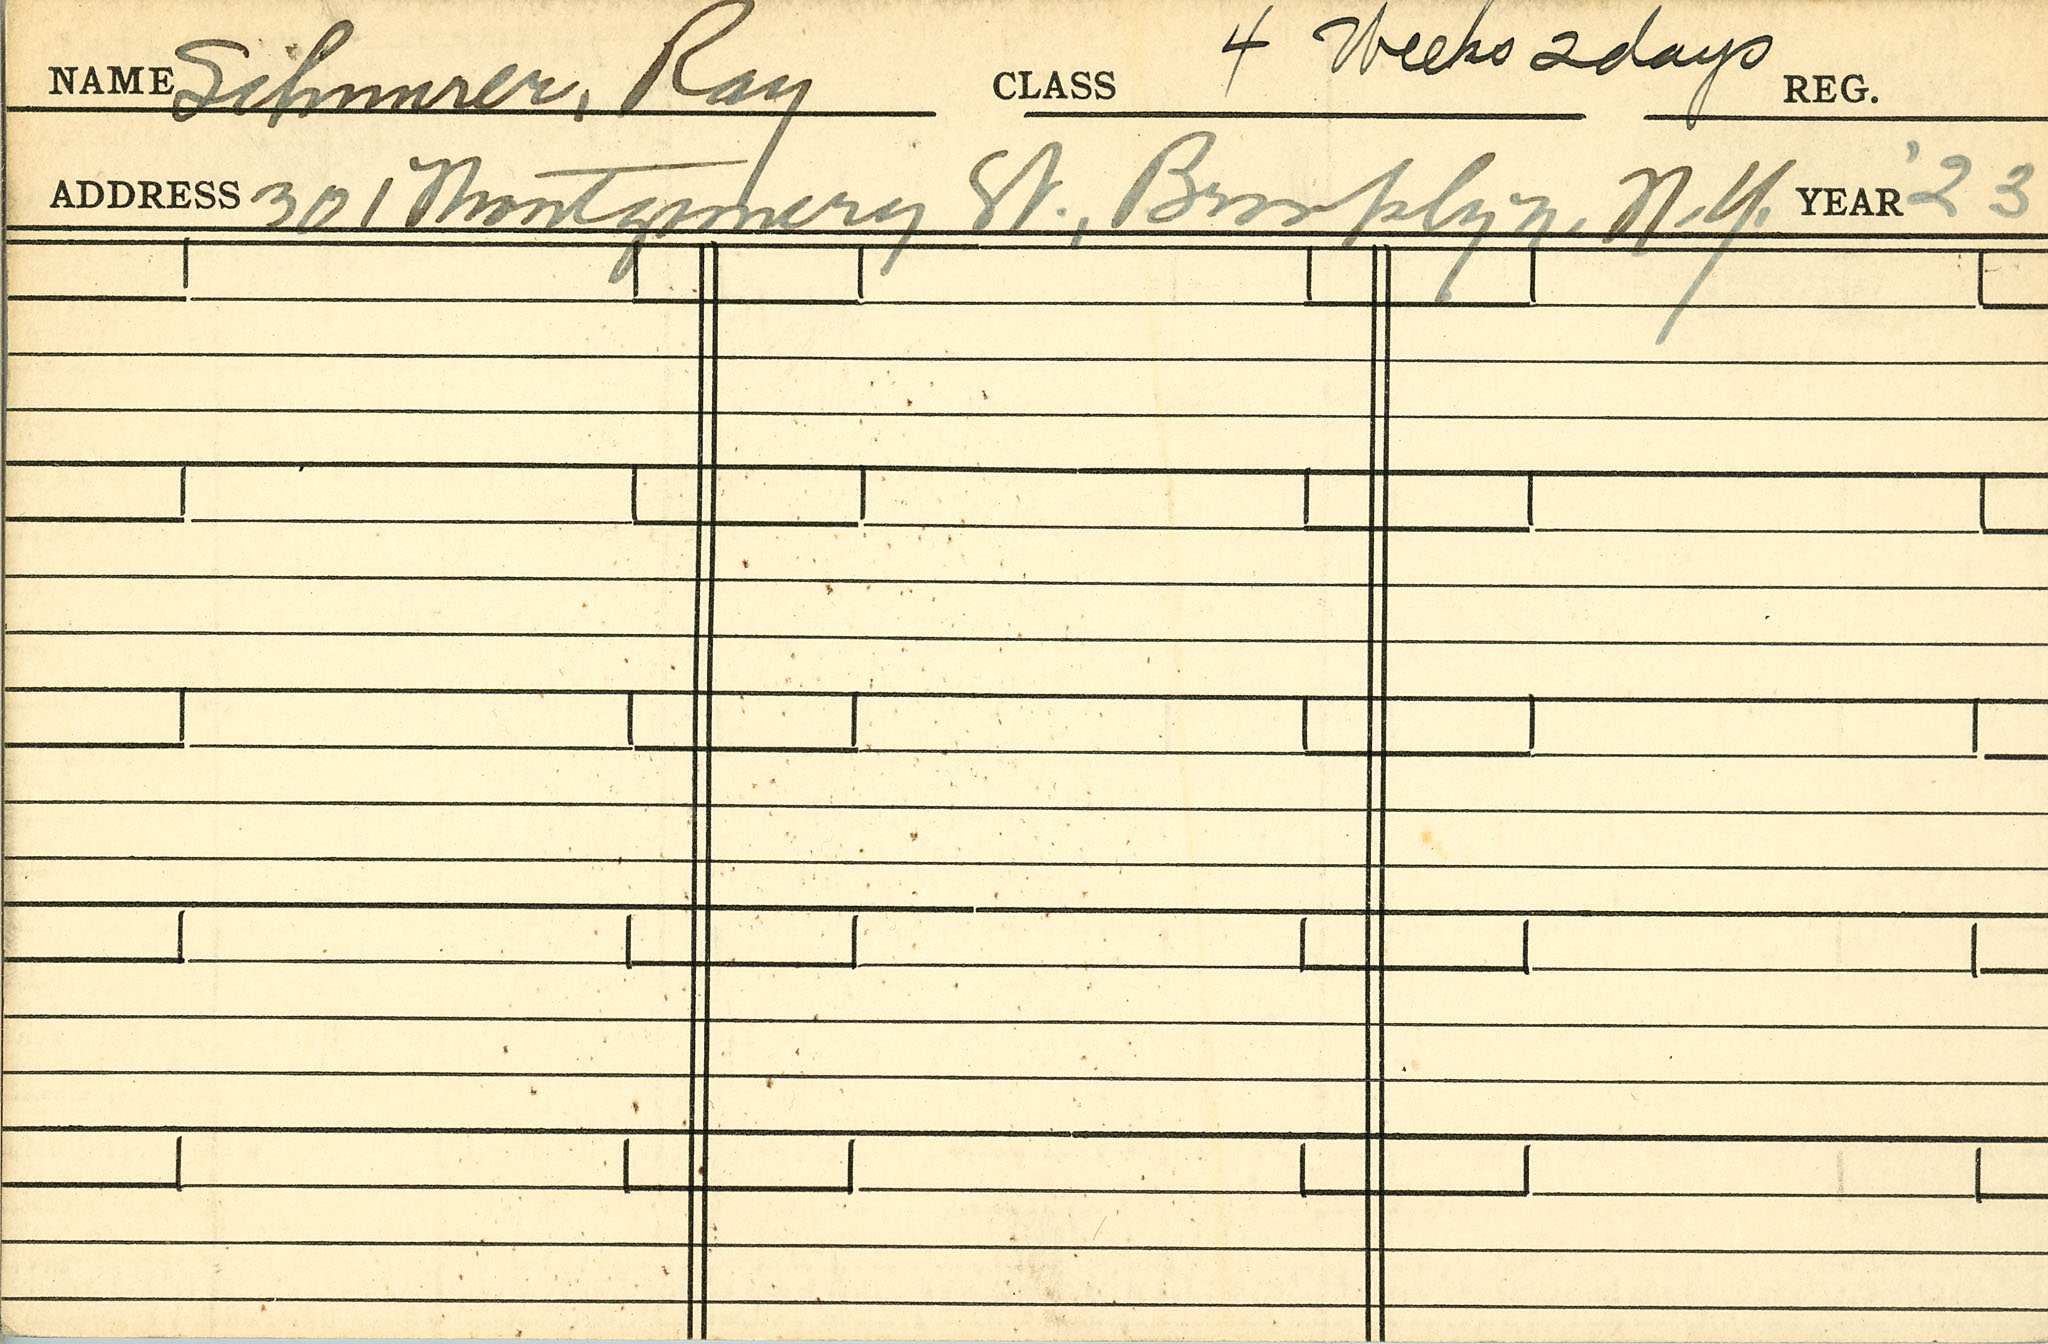 NAME Schnurer, Ray CLASS 4 Weeks 2 days REG.
ADDRESS 301 Montgomery St., Brooklyn, N.Y. YEAR '23